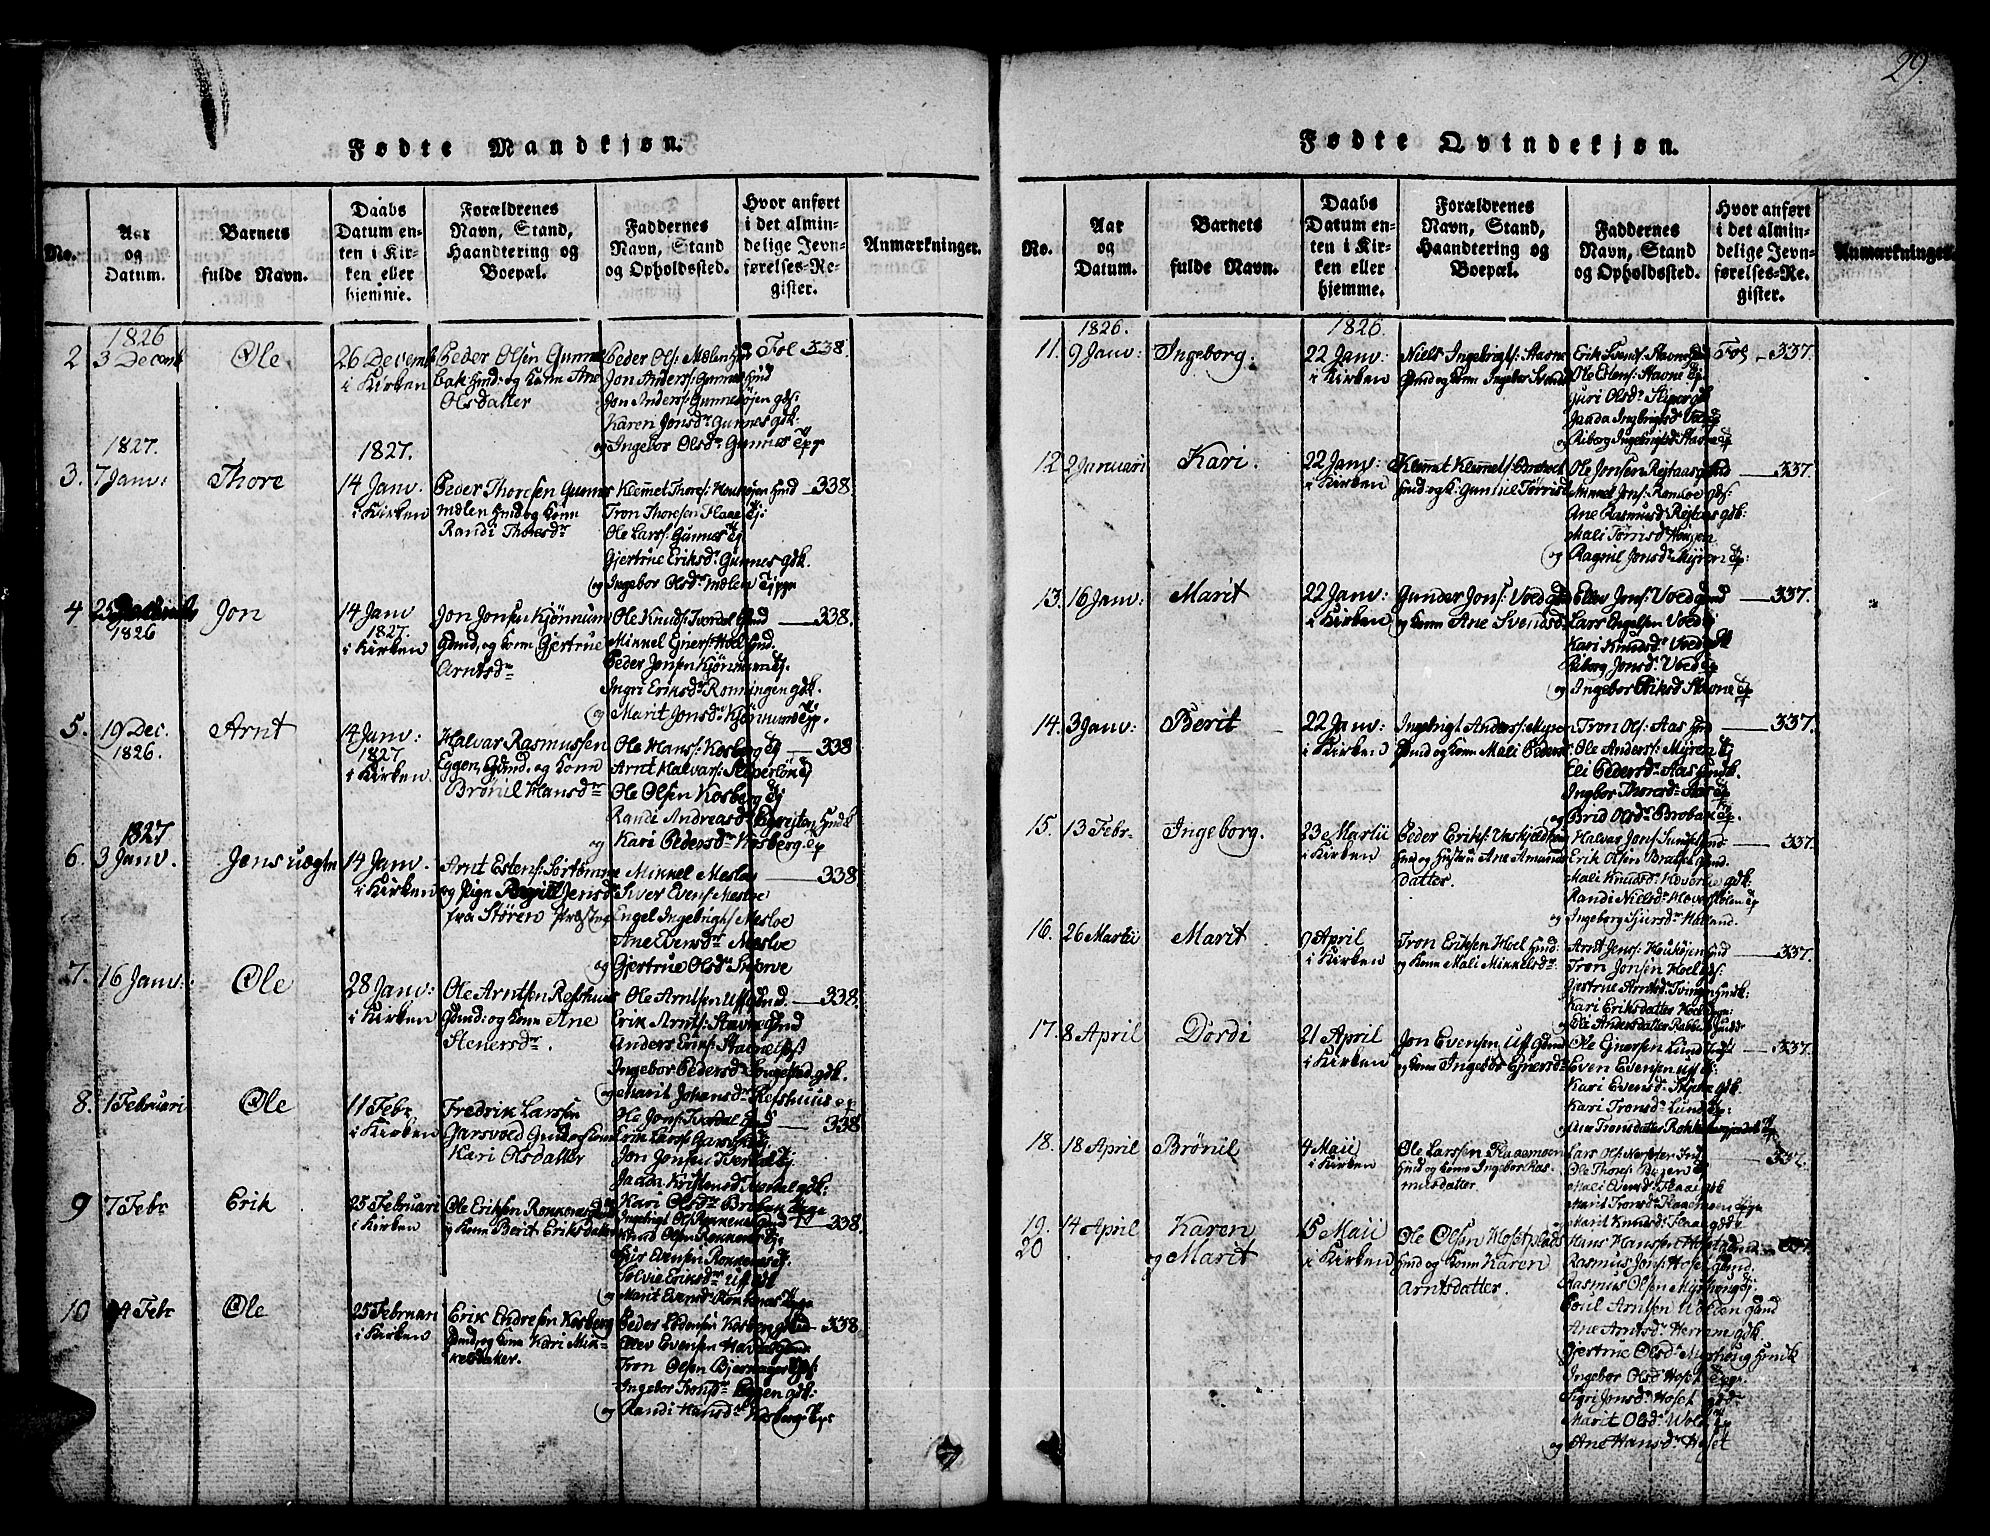 29.
Fødte Mandkjøn.
No.
Aar
og
Datum.
Barnets
fulde Navn.
Daabs
Datum en-
ten i Kir-
ken eller
hjemme.
Forældrenes
Navn, Stand,
Haandtering og
Boepæl.
Faddernes
Navn, Stand
og Opholdssted.
Hvor anført
i det almin-
delige Jevn-
førelses-Re-
gister.
Anmærkninger.
1826
2 3 Decemb
Ole
26 Decemb
i Kirken
Peder Olsen Gunnes
bak Hmd: og Kone Ane
Olsdatter
Peder Ols: Mælen
Jon Anders: Gunnes Hmd
Jon Anders: Gunnesöjen gds:
Karen Jonsdr Gunnes gdk.
og Ingebor Olsdr Gunnes
Fol 338.
1827.
3. 7 Janv:
Thore
1827.
14 Janv:
i Kirken
Peder Thoresen Gunnes
mælen Hmd og Kone
Randi Thoresdr
Klemet Thores: Houköjen Hmd
Tron Thoresen Flaae
Ole Lars: Gunnes
Gjertrue Eriksdr Gunnes gdk.
og Ingebor Olsdr Mælen
338.
4 25
1826
Jon
14 Janv
1827.
i Kirken
Jon Jonsen Kjönnum
Gmd, og Kone Gjertrue
Arntsdr
Ole Knuds: Tverdal Gmd
Mikkel Ejners: Hoel Hmd.
Peder Jonsen Kjönnum
Ingri Eriksdr Ronningen gdk.
og Marit Jonsdr Kjönnum
338.
5. 19 Dec.
1826.
Arnt
14 Janv:
1827
i Kirken
Halvar Rasmussen
Eggen, Gmd. og Kone
Brönil Hansdr
Ole Hans: Kosberg
Arnt Halvars:
Ole Olsen Kosberg
Randi Andreasdr
og Kari Pedersdr Kosberg
338
1827
6. 3 Janv.
Jens uægte
14 Janv.
i Kirken
Arnt Estens: Sörtömme
og Pige Jensdr
fra Stören Præsteg
Mikkel Mesloe
Siver Evens: Mesloe
Engel Ingebrigts Mesloe
Ane Evensdr Mesloe
og Gjertrue Olsdr
338
7. 16 Janv:
Ole
28 Janv:
i Kirken
Ole Arntsen Refshuus
Gmd: og Kone Ane
Stenersdr.
Ole Arntsen
Erik Arnts: Stavne Gmd
Anders Eriks:
Ingebor Pedersdr gdk.
og Marit Johansdr Refshuus
338.
8. 1 Februari
Ole
11 Febr
i Kirken
Fredrik Larssen
Garsvoed Gmd og Kone
Kari Olsdatter
Ole Jons: Tverdal Gmd
Erik Lars: Garsvoed
Jon Jonsen Tverdal
Jaada Kristensdr gdk:
Kari Olsdr
338
9 7 Febr
Erik
25 Februari
i Kirken
Ole Eriksen Rokkenes
og Kone Berit Eriksdatter
Ingebrigt Ols: Rokkenes Gmd
Olsen Rokkenes
Evensen Rokkenes
Solvie Eriksdr
og Marit Evensdr Rokkenes
338.
10 4 Febr
Ole
25 Februari
i Kirken
Erik Endresen Kosberg
Gmd og Kone Kari Mik-
kelsdatter.
Peder Endresen Kosberg
Ellev Evensen
Tron Olsen
Ingebor Tronsdr Eggen gdk:
og Randi Hansdr Kosberg
338
Fødte Qvindekjøn.
No.
Aar
og
Datum.
Barnets
fulde Navn.
Daabs
Datum en-
ten i Kir-
ken eller
hjemme.
Forældrenes
Navn, Stand,
Haandtering og
Boepæl.
Faddernes
Navn, Stand
og Opholdssted.
Hvor anført
i det almin-
delige Jevn-
førelses-Re-
gister.
Anmærkninger.
1826.
11. 9 Janv:
Ingeborg.
1826.
22 Janv:
i Kirken
Niels Ingebrigts: Stavne
Gmd og Kone Ingebor Svends
Erik Svends: Stavne
Ole Estens: Stavne
Guri Olsdr
Jaada Ingbrigtsdr
og Riborg Ingebrigtsdr Stavne
Fol 337.
12 2 Januari
Kari.
22 Janv:
i Kirken
Klemet Klemets:
Hmd og K: Gunhil Törrisdr
Ole Jonsen Rejtaas Gmd
Mikkel Jons: Romloe gds:
Ane Rasmusdr Rejtaas gdk:
Mali Törrisdr Hougen
og Ragnil Jonsdr Myren
337.
13. 16 Janv:
Marit
22 Janv:
i Kirken
Gunder Jons: Voed
og Kone Ane Svendsdr
Ellev Jons: Voed Gmd
Lars Engelsen Voed
Kari Knudsdr Voed
Riborg Jonsdr Voed
og Ingebor Eriksdr Stavne
337.
14. 3 Janv:
Berit
22 Janv:
i Kirken
Ingebrigt Anders: Myren
Gmd og Kone Mali Pedersdr
Tron Ols: Aas Hmd
Ole Anders: Myren
Eli Pedersdr Aas Hmdk.
Ingbor Thoresdr Aas
og Brid Olsdr Brobak
337.
15. 13 Febr.
Ingeborg.
23 Martii
i Kirken
Peder Eriks:
Hmd og Hustru Ane Amunds
datter.
Halvar Jons: Hmd
Erik Olsen Gmd.
Mali Knudsdr gdk:
Randi Nielsdr
og Ingeborg Siversdr
337.
16. 26 Martii
Marit
9 April
i Kirken
Tron Eriksen Hoel Hmd:
og Kone Mali Mikkelsdr
Arnt Jens: Houköjen Hmd
Tron Jonsen Hoel gds:
Gjertrue Arntsdr Hmdk:
Kari Eriksdatter Hoel
og Eli Andersdatter
337.
17. 8 April
Dordi
21 April
i Kirken
Jon Evensen Uf Gmd
og Kone Ingebor Ejnersdr
Ole Ejnersen Lund
Even Evensen Uf
Kari Evensdr gdk.
Kari Tronsdr Lund
og Tronsdatter
337.
18. 18 April
Brönil
4 Maii
i Kirken
Ole Larssen Flaaemoen
Hmd og Kone Ingebor Ras-
musdatter.
Lars Ols:
Ole Thores:
Mali Evensdr Flaae gdk
Marit Tronsdr Flaaemoen
Marit Knudsdr Flaae gdk
337.
19. 14 April
20
Karen
og Marit
15 Maii
i Kirken
Ole Olsen Hosetplads
Hmd og Kone Karen
Arntsdatter.
Hans Hanssen Hoset Gmd
Rasmus Jons: Hoset Gmd.
Rasmus Olsen Myrhoug
Poul Arntsen Gmd
Ane Arntsdr Herrem gdk.
Gjertrue Olsdr Myrhoug Hmdk
Ingebor Olsdr Hoset
Sigri Jonsdr Hoset gdk
Marit Olsdr
og Ane Hansdr Hoset
337